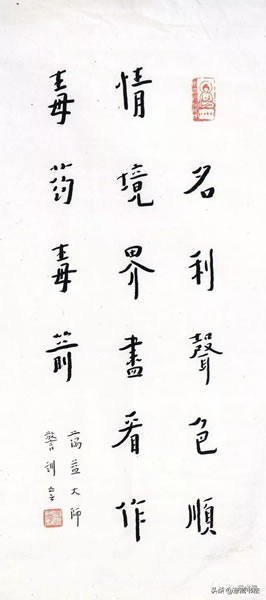 名利聲色順
情境界盡看作
毒药毒箭
蕅益大師
警訓
头条